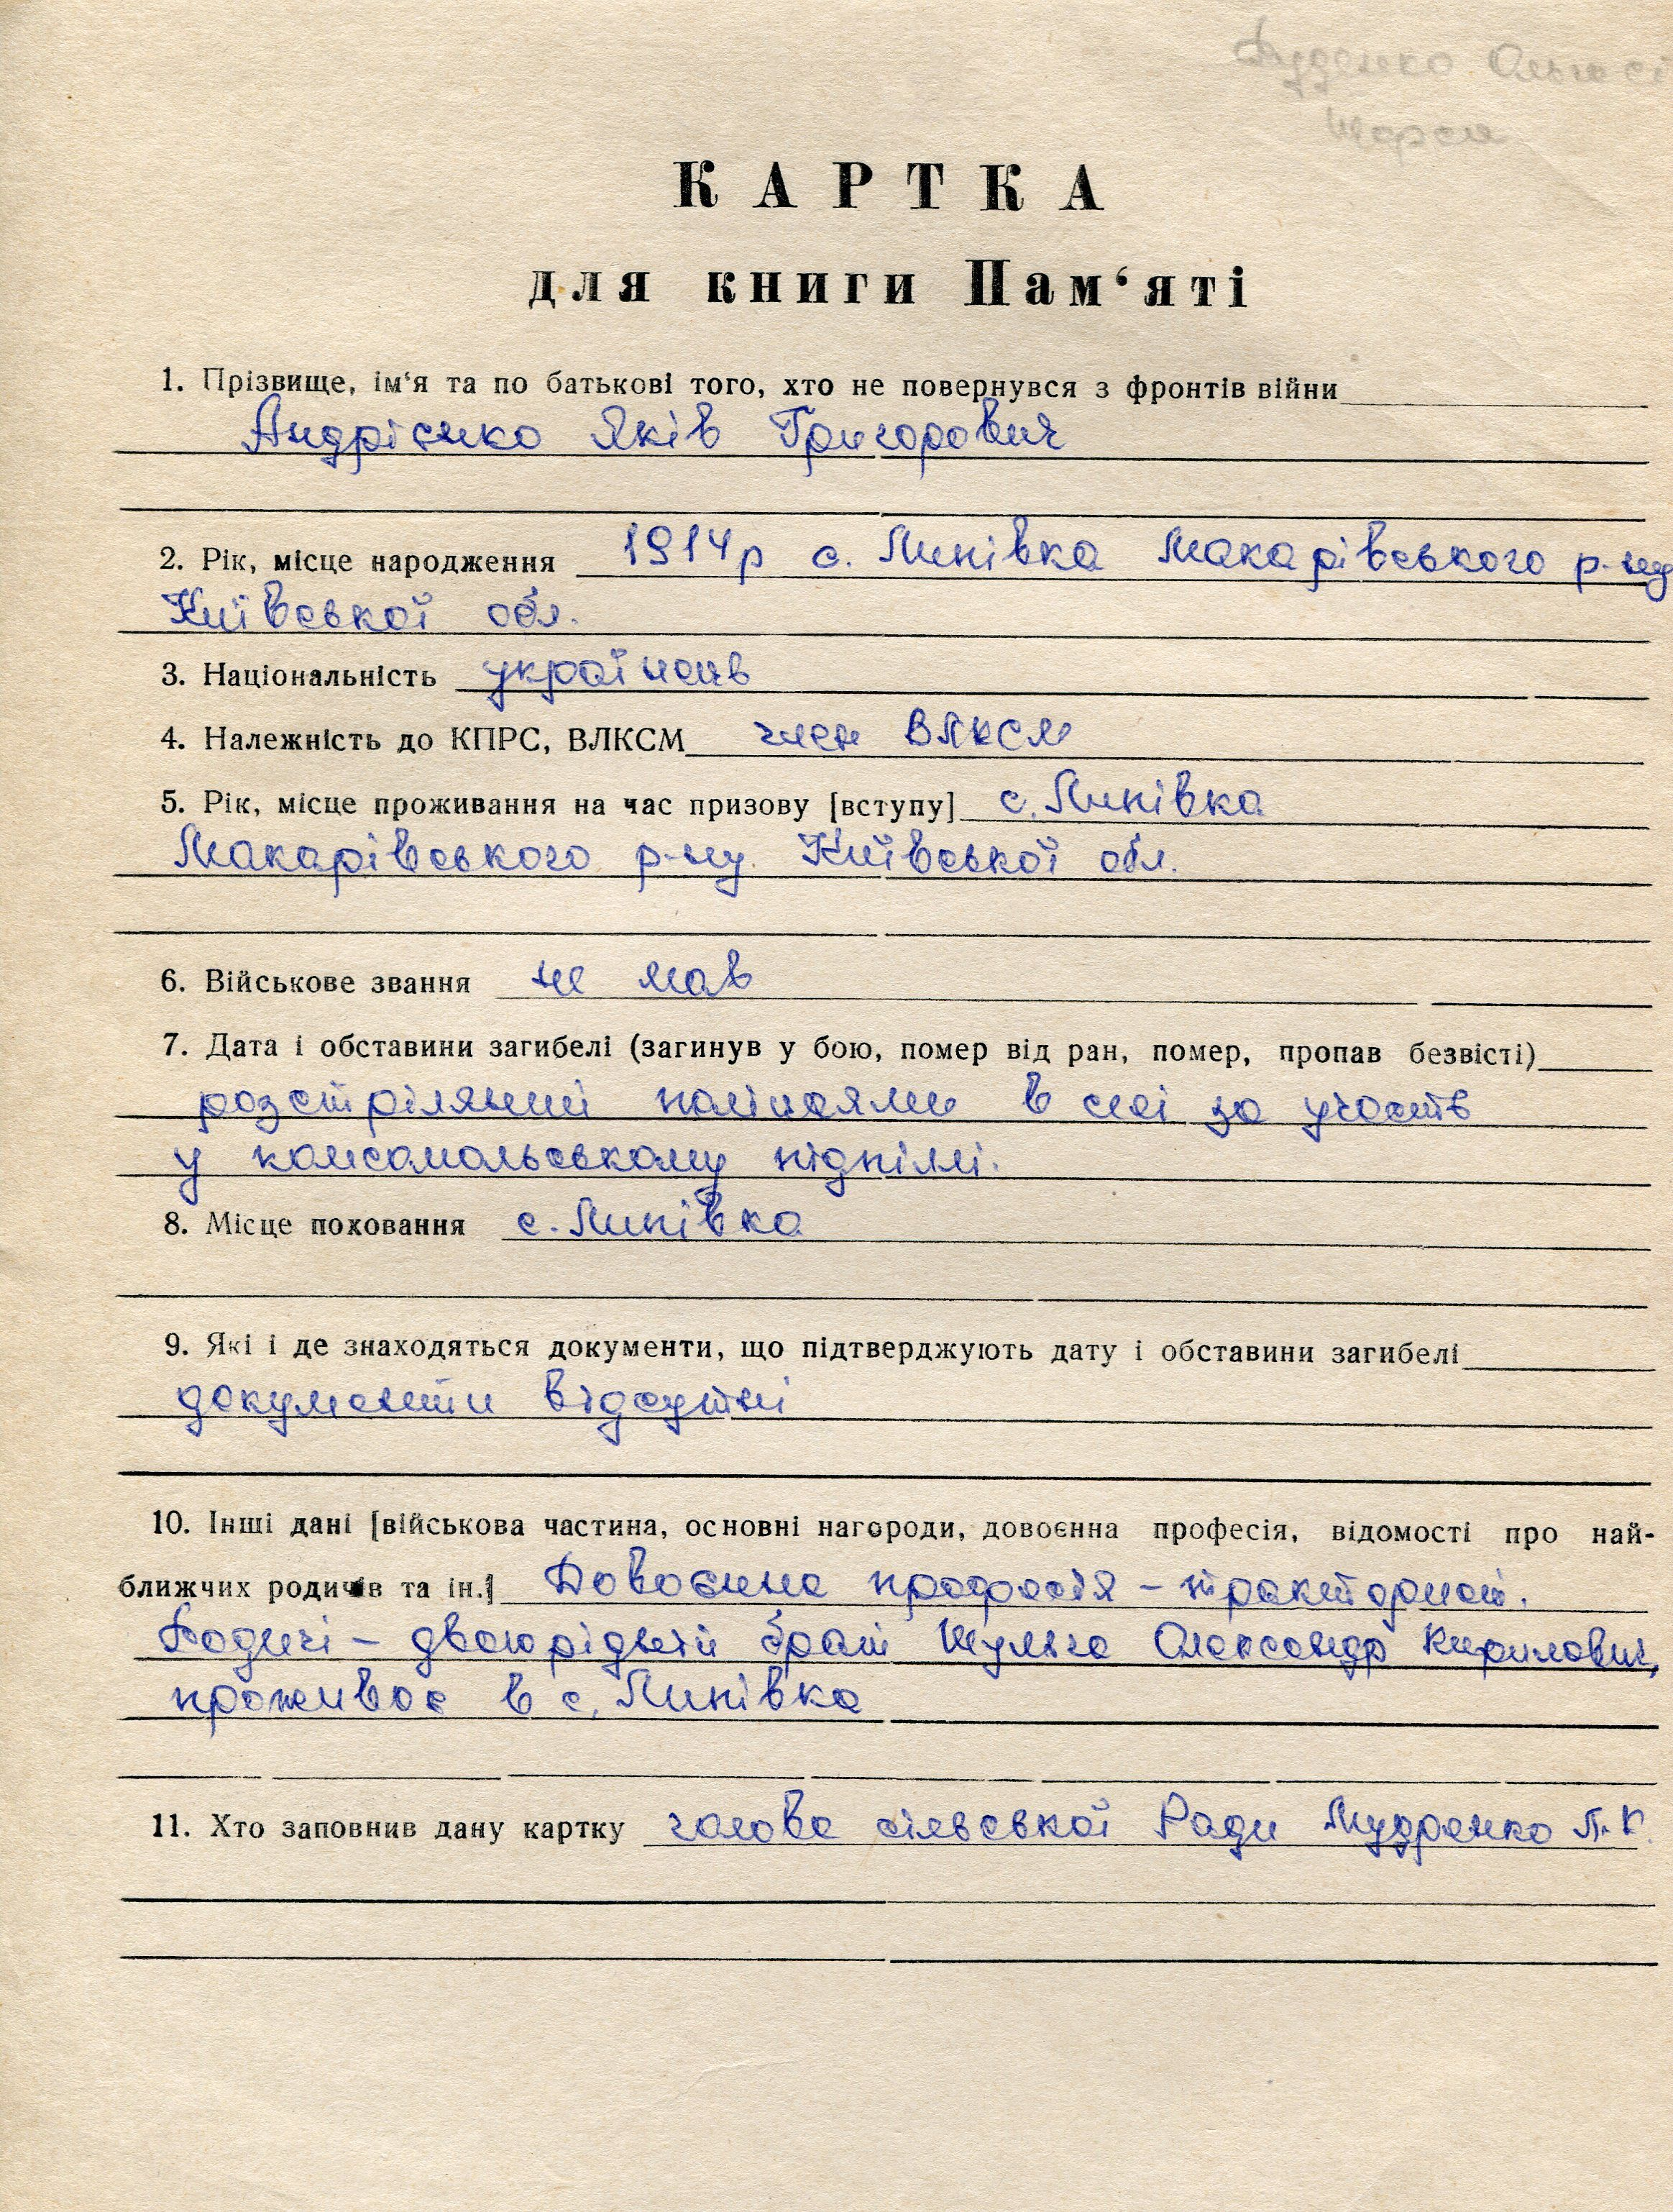 КАРТКА
для книги Пам‘яті
1. Прізвище, ім‘я та по батькові того, хто не повернувся з фронтів війни
Андрієнко Яків Григорович
2. Рік, місце народження 1914р с. Липівка Макарівського р-ну
Київської обл.
3. Національність українець
4. Належність до КПРС, ВЛКСМ член ВЛКСМ
5. Рік, місце проживання на час призову [вступу] с. Липівка
Макарівського р-ну. Київської обл.
6. Військове звання не мав
7. Дата і обставини загибелі (загинув у бою, помер від ран, помер, пропав безвісті)
розстріляний поліцаями в селі за участь
у комсомольському підпіллі.
8. Місце поховання с. Липівка
9. Які і де знаходяться документи, що підтверджують дату і обставини загибелі
документи відсутні
10. Інші дані [військова частина, основні нагороди, довоєнна професія, відомості про най-
ближчих родичів та ін.] Довоєнна професія – тракторист.
Родичі – двоюрідний брат Шульга Олександр Кирилович,
проживає в с. Липівка
11. Хто заповнив дану картку голова сільської Ради Мудренко П.К.